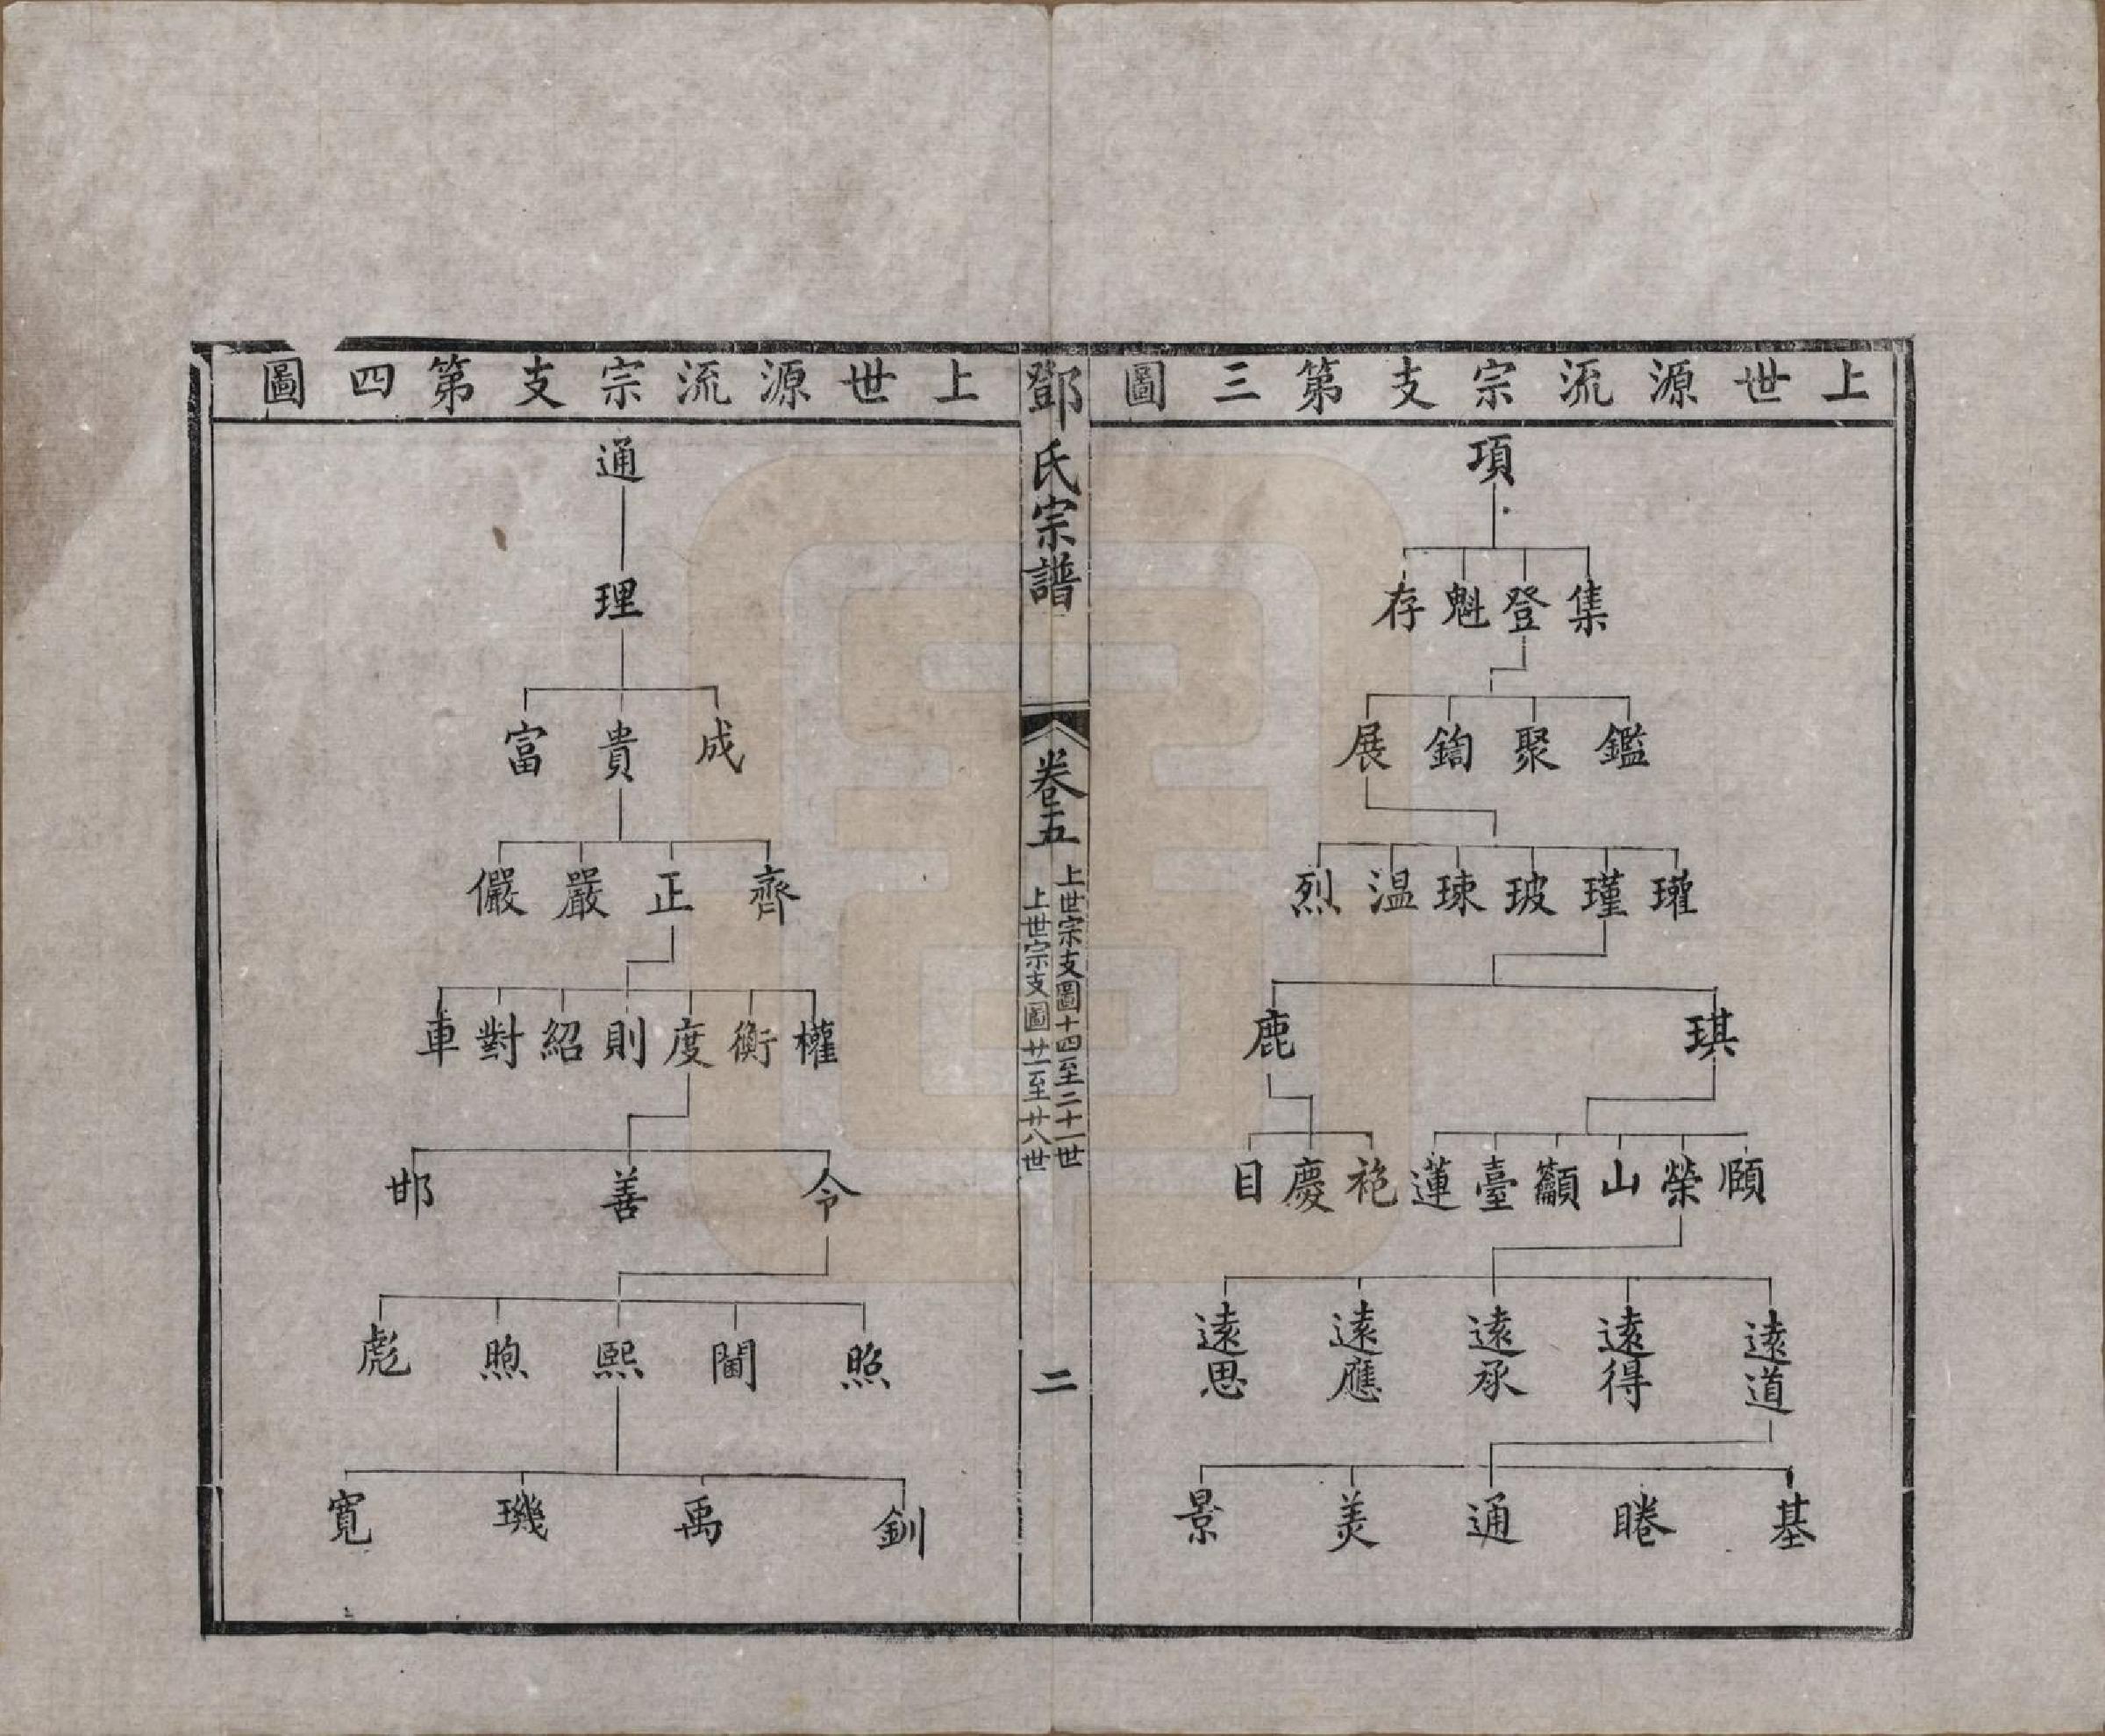 上世源流宗支第三圖
項
集 登 魁 存
鑑 聚 鋾 展
瓘 瑾 玻 玸 温 烈
琪 鹿
頤 榮 山 籲 臺 蓮 袍 慶 目
遠道 遠得 遠承 遠應 遠思
基 睠 通 美 景
鄧氏宗譜
卷五
上世宗支圖十四至二十一世
上世宗支圖廿一至廿八世
二
上世源流宗支第四圖
通
理
成 貴 富
齊 正 嚴 儼
權 衡 度 則 紹 對 車
令 善 邯
照 熙 煦 彪
釧 禹 璣 寬